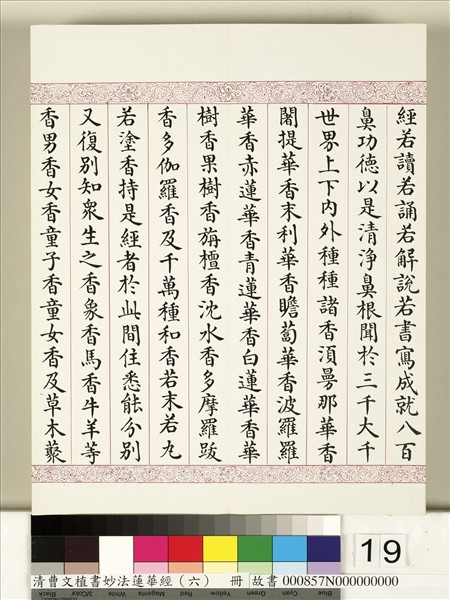 經若讀若誦若解說若書寫成就八百
鼻功德以是清淨鼻根聞於三千大千
世界上下內外種種諸香須曼那華香
闍提華香末利華香瞻蔔華香波羅羅
華香赤蓮華香青蓮華香白蓮華香華
樹香果樹香栴檀香沈水香多摩羅跋
香多伽羅香及千萬種和香若末若丸
若塗香持是經者於此間住悉能分別
又復別知眾生之香象香馬香牛羊等
香男香女香童子香童女香及草木藂
19
Black
3/Color
White
Magenta
Red
Yellow
Green
Cyan
Blue
清曹文植書妙法蓮華經(六) 冊 故書 000857N000000000